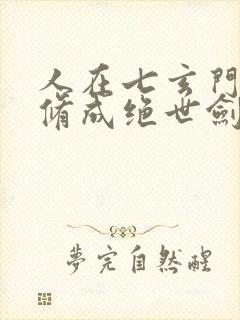 人在七玄門
脩成绝世劍
夢完自然醒